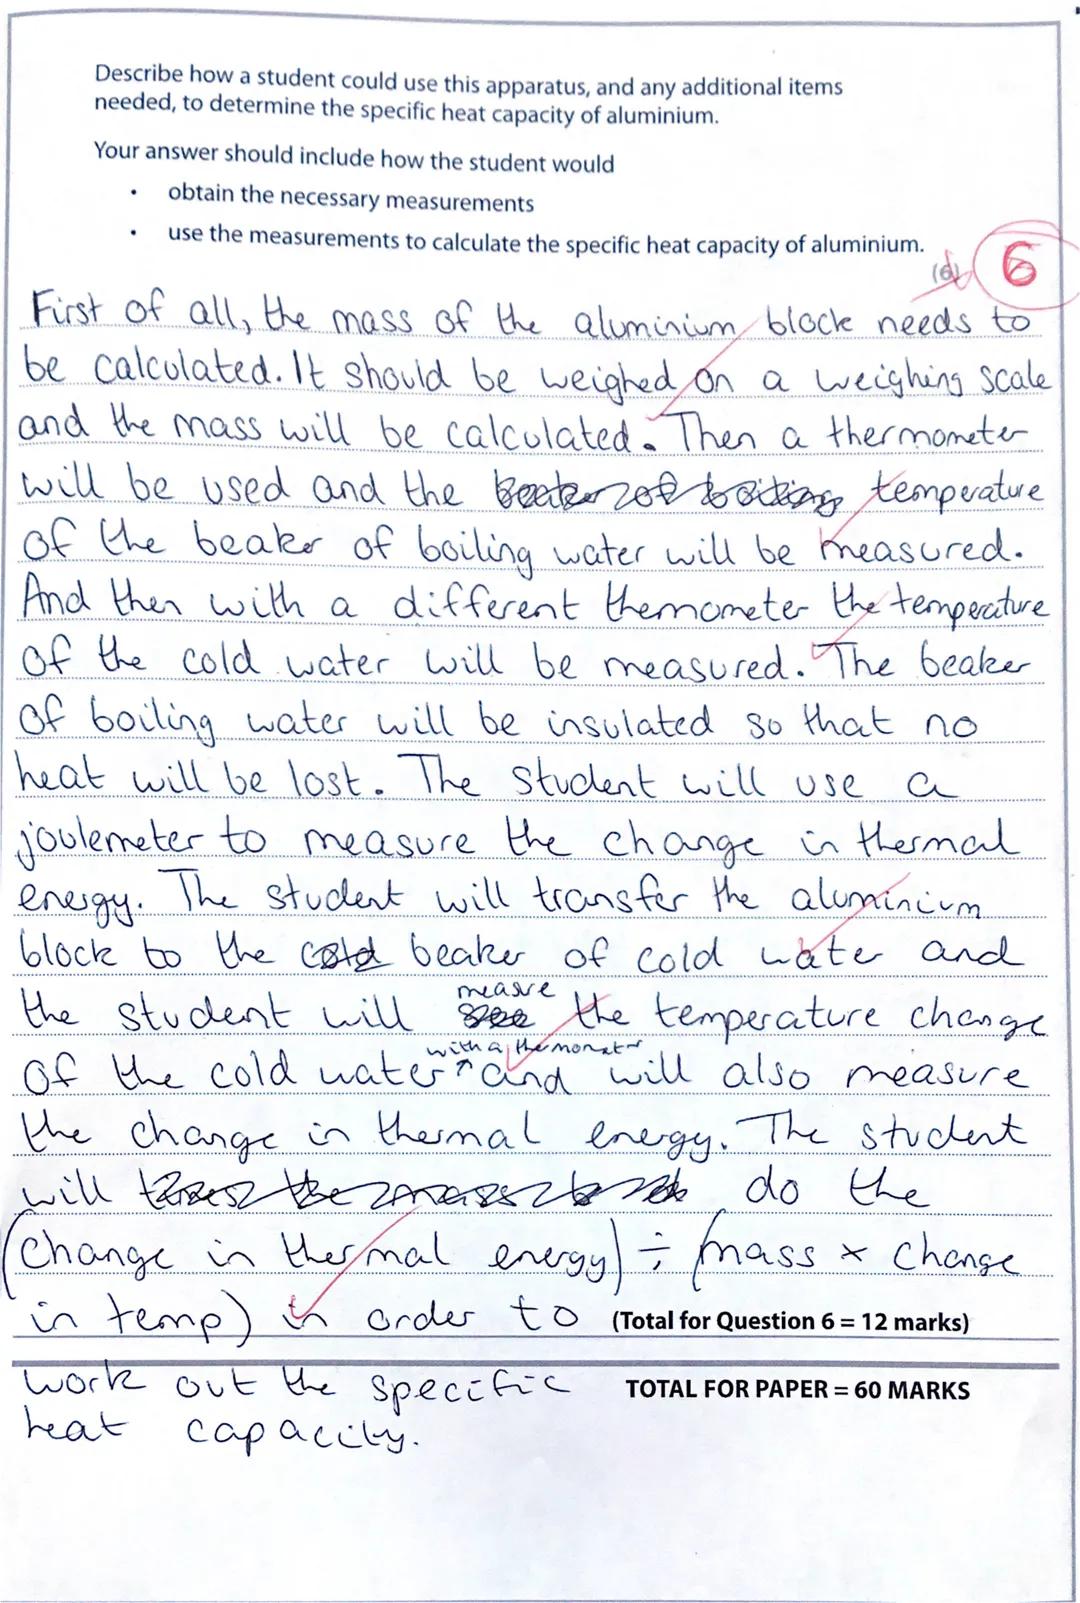 Describe how a student could use this apparatus, and any additional items
needed, to determine the specific heat capacity of aluminium.
Your answer should include how the student would
• obtain the necessary measurements
• use the measurements to calculate the specific heat capacity of aluminium.
(6) 6
First of all, the mass of the aluminium block needs to
be calculated. It should be weighed on a weighing scale
and the mass will be calculated. Then a thermometer
will be used and the temperature
of the beaker of boiling water will be measured.
And then with a different themometer the temperature
of the cold water will be measured. The beaker
of boiling water will be insulated so that no
heat will be lost. The student will use a
joulemeter to measure the change in thermal
energy. The student will transfer the aluminium
block to the cold beaker of cold water and
measre
the student will see the temperature change
with a themonetr
of the cold water and will also measure
the change in thermal energy. The student
will do the
(change in thermal energy) ÷ (mass × change
in temp) in order to (Total for Question 6 = 12 marks)
work out the specific TOTAL FOR PAPER = 60 MARKS
heat capacity.